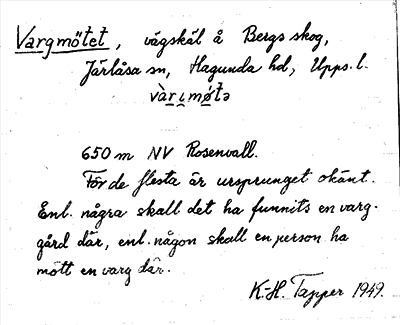 Vargmötet, vägskäl å Bergs skog,
Järlåsa sn, Hagunda hd, Upps. l.
vàrımø̄tə
650 m NV Rosenvall.
För de flesta är ursprunget okänt.
Enl. några skall det ha funnits en varg-
gård där, enl. någon skall en person ha
mött en varg där.
K.-H. Tapper 1949.